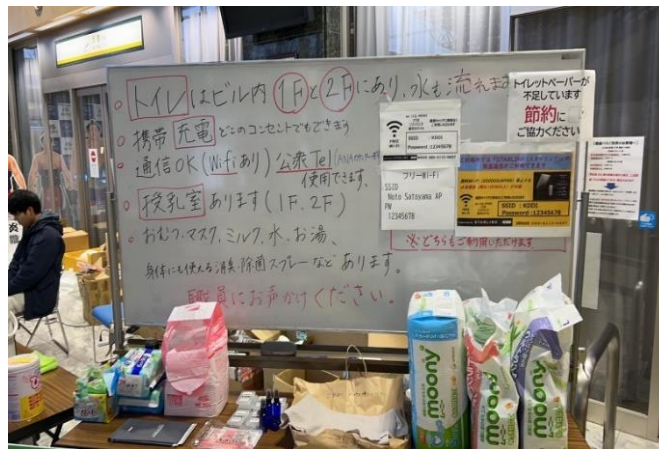 トイレはビル内1Fと2Fにあり、水も流れます
携帯充電どこのコンセントでもできます
通信OK(Wifiあり)公衆Tel(ANA
使用できます。
授乳室あります(1F.2F)
おむつ、マスク、ミルク、水、お湯、
身体にも使える消臭・除菌スプレーなどあります。
職員にお声かけください。
トイレットペーパーが
不足しています
節約に
ご協力ください
SSID :KDDI
Password:12345678
フリーWi-Fi
SSID
Noto Satoyama AP
PW
12345678
SSID :KDDI
Password:12345678
※どちらもご利用いただけます
moony
moony
moony